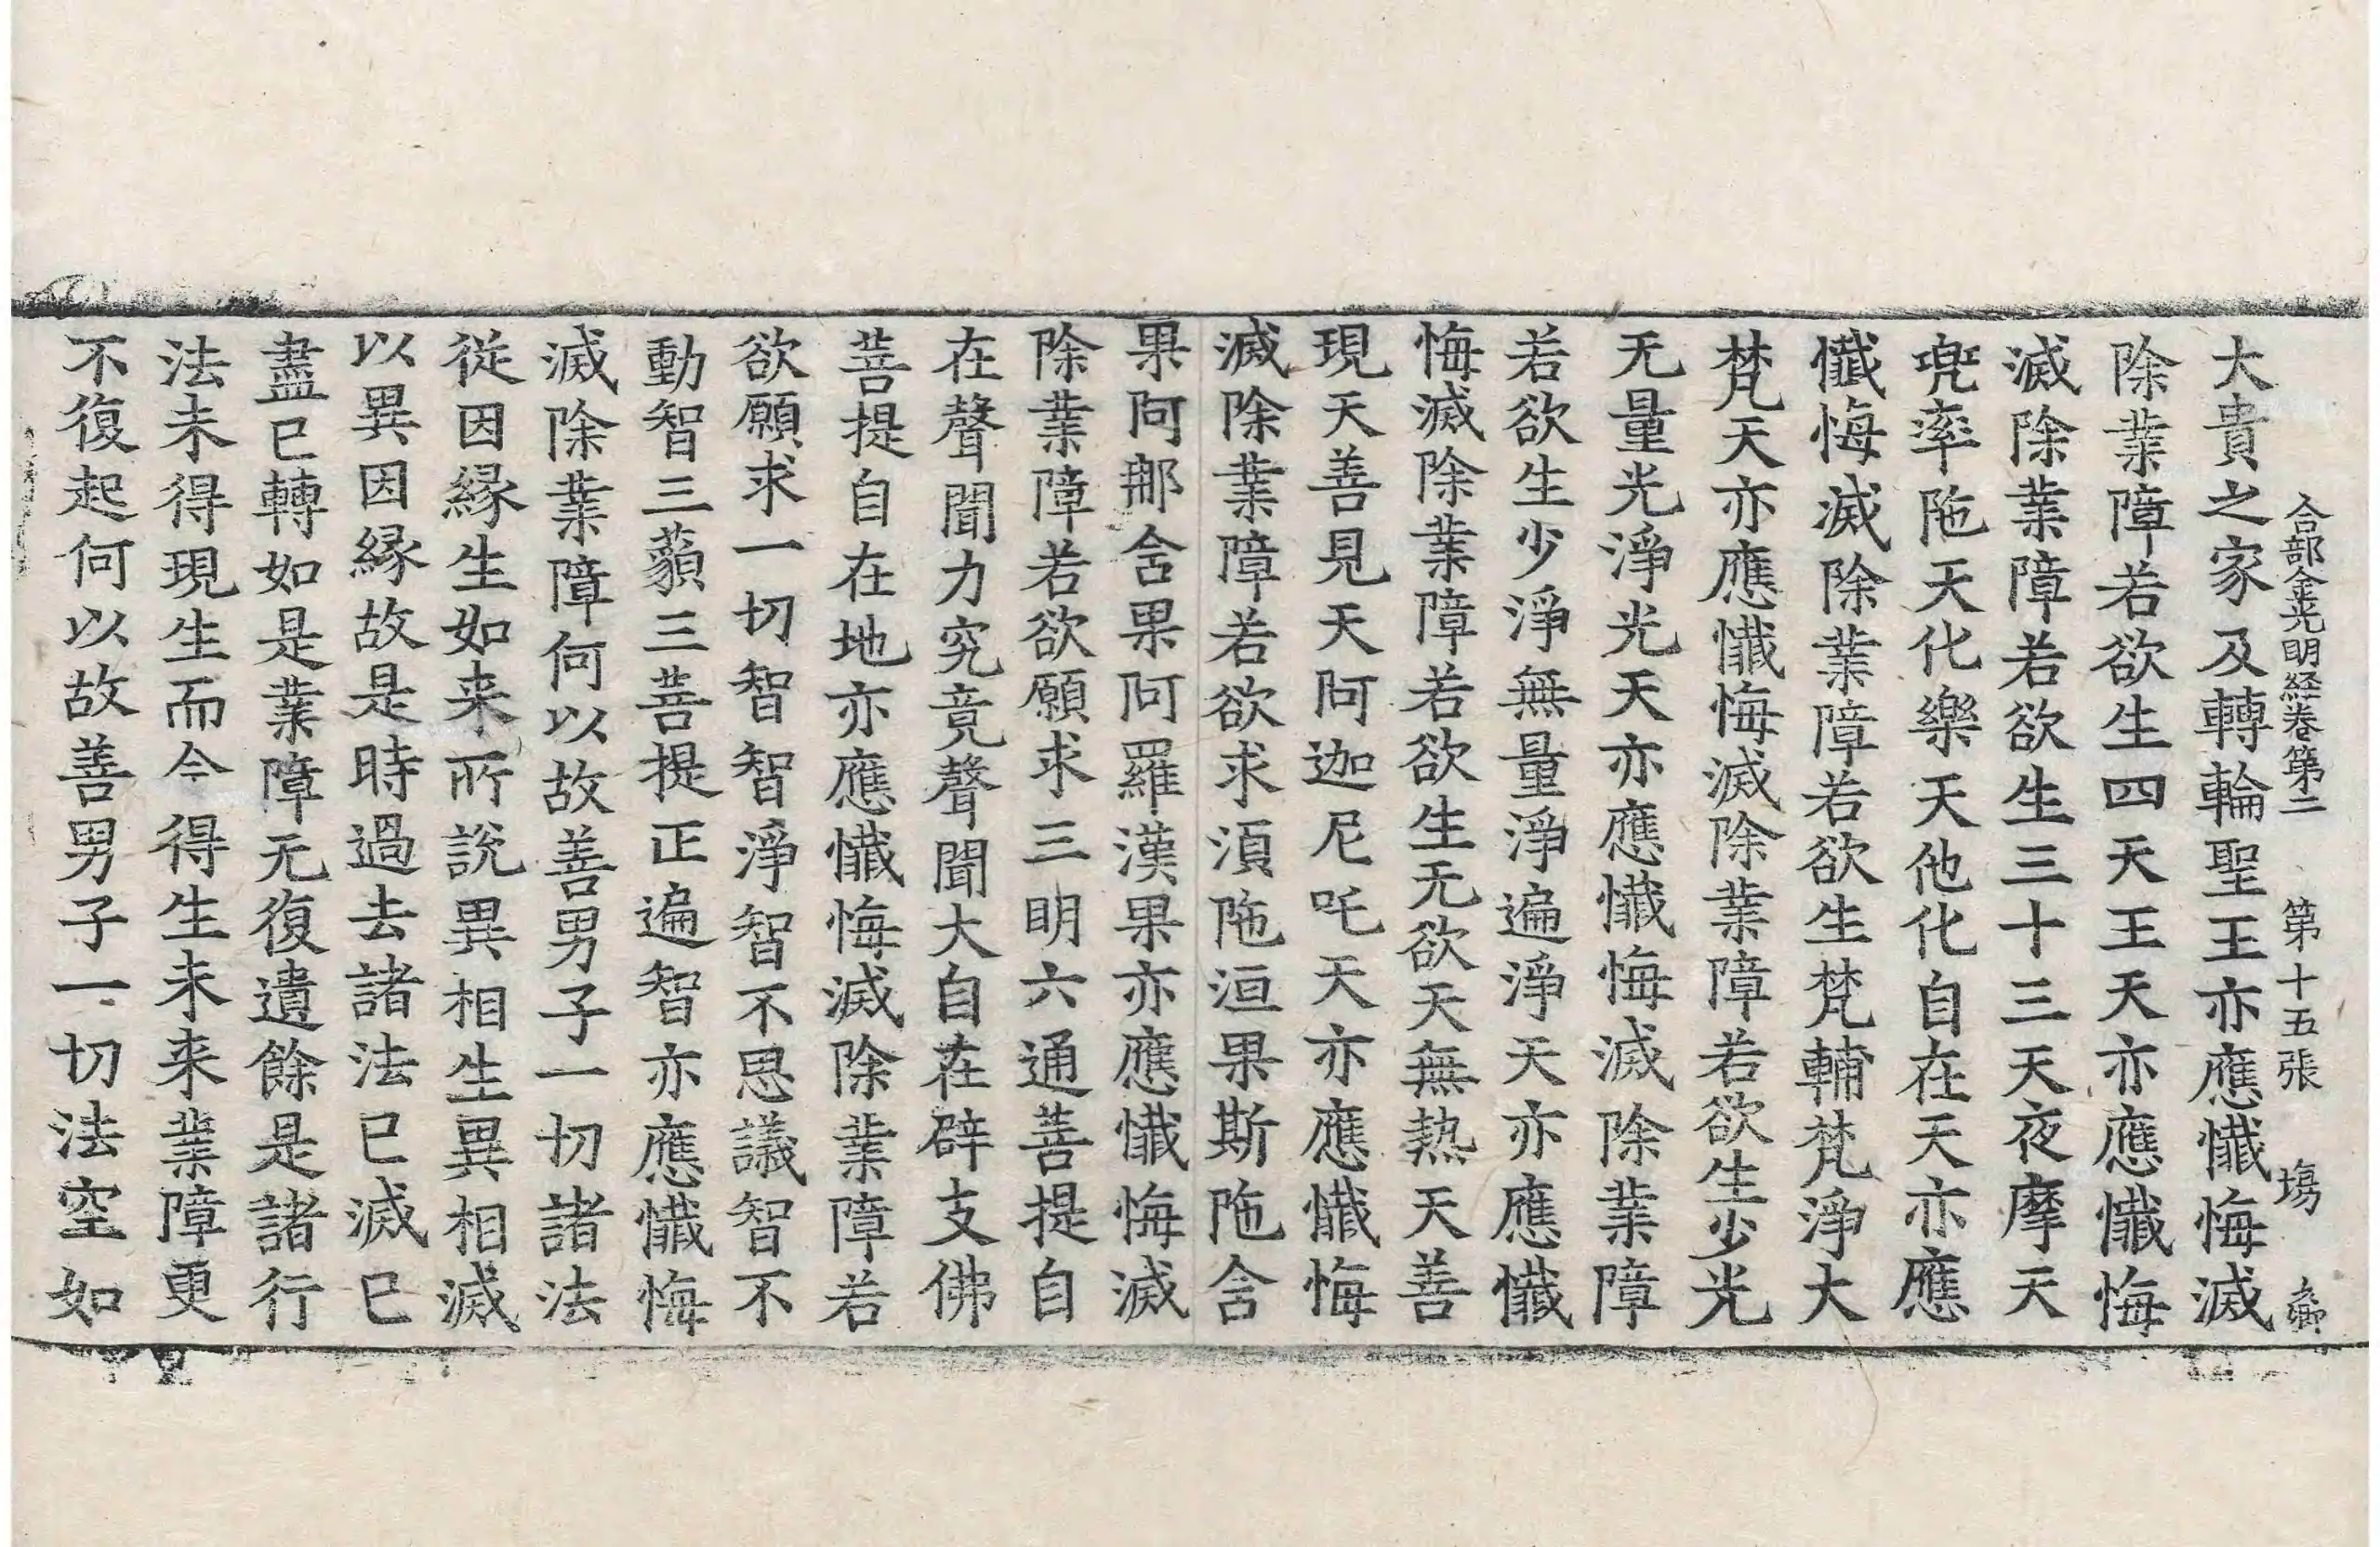 合部金光明経卷第二 第十五張 塲
大貴之家及轉輪聖王亦應懺悔滅
除業障若欲生四天王天亦應懺悔
滅除業障若欲生三十三天夜摩天
兜率陁天化樂天他化自在天亦應
懺悔滅除業障若欲生梵輔梵淨大
梵天亦應懺悔滅除業障若欲生少光
无量光淨光天亦應懺悔滅除業障
若欲生少淨無量淨遍淨天亦應懺
悔滅除業障若欲生无欲天無熱天善
現天善見天阿迦尼吒天亦應懺悔
滅除業障若欲求須陁洹果斯陁含
果阿那含果阿羅漢果亦應懺悔滅
除業障若欲願求三明六通菩提自
在聲聞力究竟聲聞大自在辟支佛
菩提自在地亦應懺悔滅除業障若
欲願求一切智智淨智不思議智不
動智三藐三菩提正遍智亦應懺悔
滅除業障何以故善男子一切諸法
從因緣生如来所說異相生異相滅
以異因緣故是時過去諸法已滅已
盡已轉如是業障无復遺餘是諸行
法未得現生而今得生未来業障更
不復起何以故善男子一切法空如